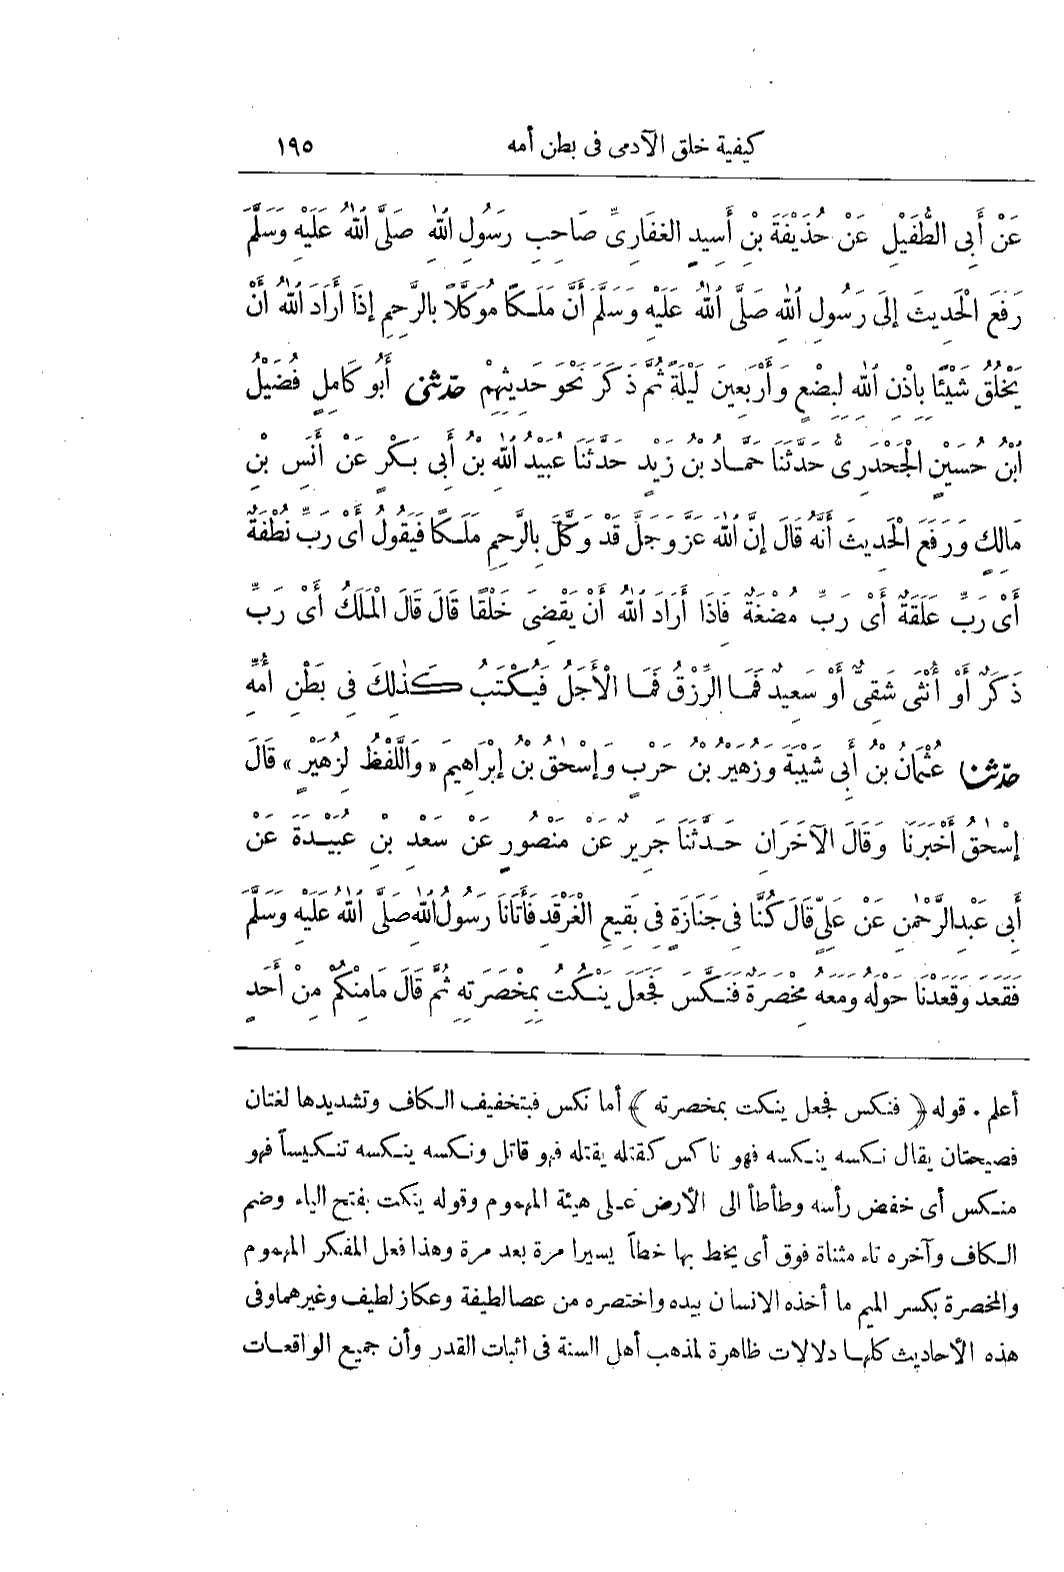 كيفية خلق الآدمى فى بطن أمه ١٩٥
عَنْ أَبِى الطُّفَيْلِ عَنْ حُذَيْفَةَ بْنِ أَسِيدٍ الغِفَارِىِّ صَاحِبِ رَسُولِ اللهِ صَلَّى اللهُ عَلَيْهِ وَسَلَّمَ
رَفَعَ الْحَدِيثَ إِلَى رَسُولِ اللهِ صَلَّى اللهُ عَلَيْهِ وَسَلَّمَ أَنَّ مَلَكًا مُوَكَّلًا بِالرَّحِمِ إِذَا أَرَادَ اللهُ أَنْ
يَخْلُقَ شَيْئًا بِاِذْنِ اللهِ لِبِضْعٍ وَأَرْبَعِينَ لَيْلَةً ثُمَّ ذَكَرَ نَحْوَ حَدِيثِهِمْ حَدَّثَنِى أَبُو كَامِلٍ فُضَيْلُ
ابْنُ حُسَيْنٍ الْجَحْدَرِىُّ حَدَّثَنَا حَمَّادُ بْنُ زَيْدٍ حَدَّثَنَا عُبَيْدُ اللهِ بْنُ أَبِى بَكْرٍ عَنْ أَنَسِ بْنِ
مَالِكٍ وَرَفَعَ الْحَدِيثَ أَنَّهُ قَالَ إِنَّ اللهَ عَزَّ وَجَلَّ قَدْ وَكَّلَ بِالرَّحِمِ مَلَكًا فَيَقُولُ أَىْ رَبِّ نُطْفَةٌ
أَىْ رَبِّ عَلَقَةٌ أَىْ رَبِّ مُضْغَةٌ فَاِذَا أَرَادَ اللهُ أَنْ يَقْضِىَ خَلْقًا قَالَ قَالَ الْمَلَكُ أَىْ رَبِّ
ذَكَرٌ أَوْ أُنْثَى شَقِىٌّ أَوْ سَعِيدٌ فَمَا الرِّزْقُ فَمَا الْأَجَلُ فَيُكْتَبُ كَذٰلِكَ فِى بَطْنِ أُمِّهِ
حَدَّثَنَا عُثْمَانُ بْنُ أَبِى شَيْبَةَ وَزُهَيْرُ بْنُ حَرْبٍ وَإِسْحٰقُ بْنُ إِبْرَاهِيمَ «وَاللَّفْظُ لِزُهَيْرٍ» قَالَ
إِسْحٰقُ أَخْبَرَنَا وَقَالَ الآخَرَانِ حَدَّثَنَا جَرِيرٌ عَنْ مَنْصُورٍ عَنْ سَعْدِ بْنِ عُبَيْدَةَ عَنْ
أَبِى عَبْدِ الرَّحْمٰنِ عَنْ عَلِىٍّ قَالَ كُنَّا فِى جَنَازَةٍ فِى بَقِيعِ الْغَرْقَدِ فَأَتَانَا رَسُولُ اللهِ صَلَّى اللهُ عَلَيْهِ وَسَلَّمَ
فَقَعَدَ وَقَعَدْنَا حَوْلَهُ وَمَعَهُ مِخْصَرَةٌ فَنَكَّسَ فَجَعَلَ يَنْكُتُ بِمِخْصَرَتِهِ ثُمَّ قَالَ مَا مِنْكُمْ مِنْ أَحَدٍ
أعلم . قوله ﴿فنكس فجعل ينكت بمخصرته﴾ أما نكس فبتخفيف الكاف وتشديدها لغتان
فصيحتان يقال نكسه ينكسه فهو ناكس كقتله يقتله فهو قاتل ونكسه ينكسه تنكيساً فهو
منكس أى خفض رأسه وطأطأ الى الأرض على هيئة المهموم وقوله ينكت بفتح الياء وضم
الكاف وآخره تاء مثناة فوق أى يخط بها خطاً يسيرا مرة بعد مرة وهذا فعل المفكر المهموم
والمخصرة بكسر الميم ما أخذه الانسان بيده واختصره من عصا لطيفة وعكاز لطيف وغيرهما وفى
هذه الأحاديث كلها دلالات ظاهرة لمذهب أهل السنة فى اثبات القدر وأن جميع الواقعات